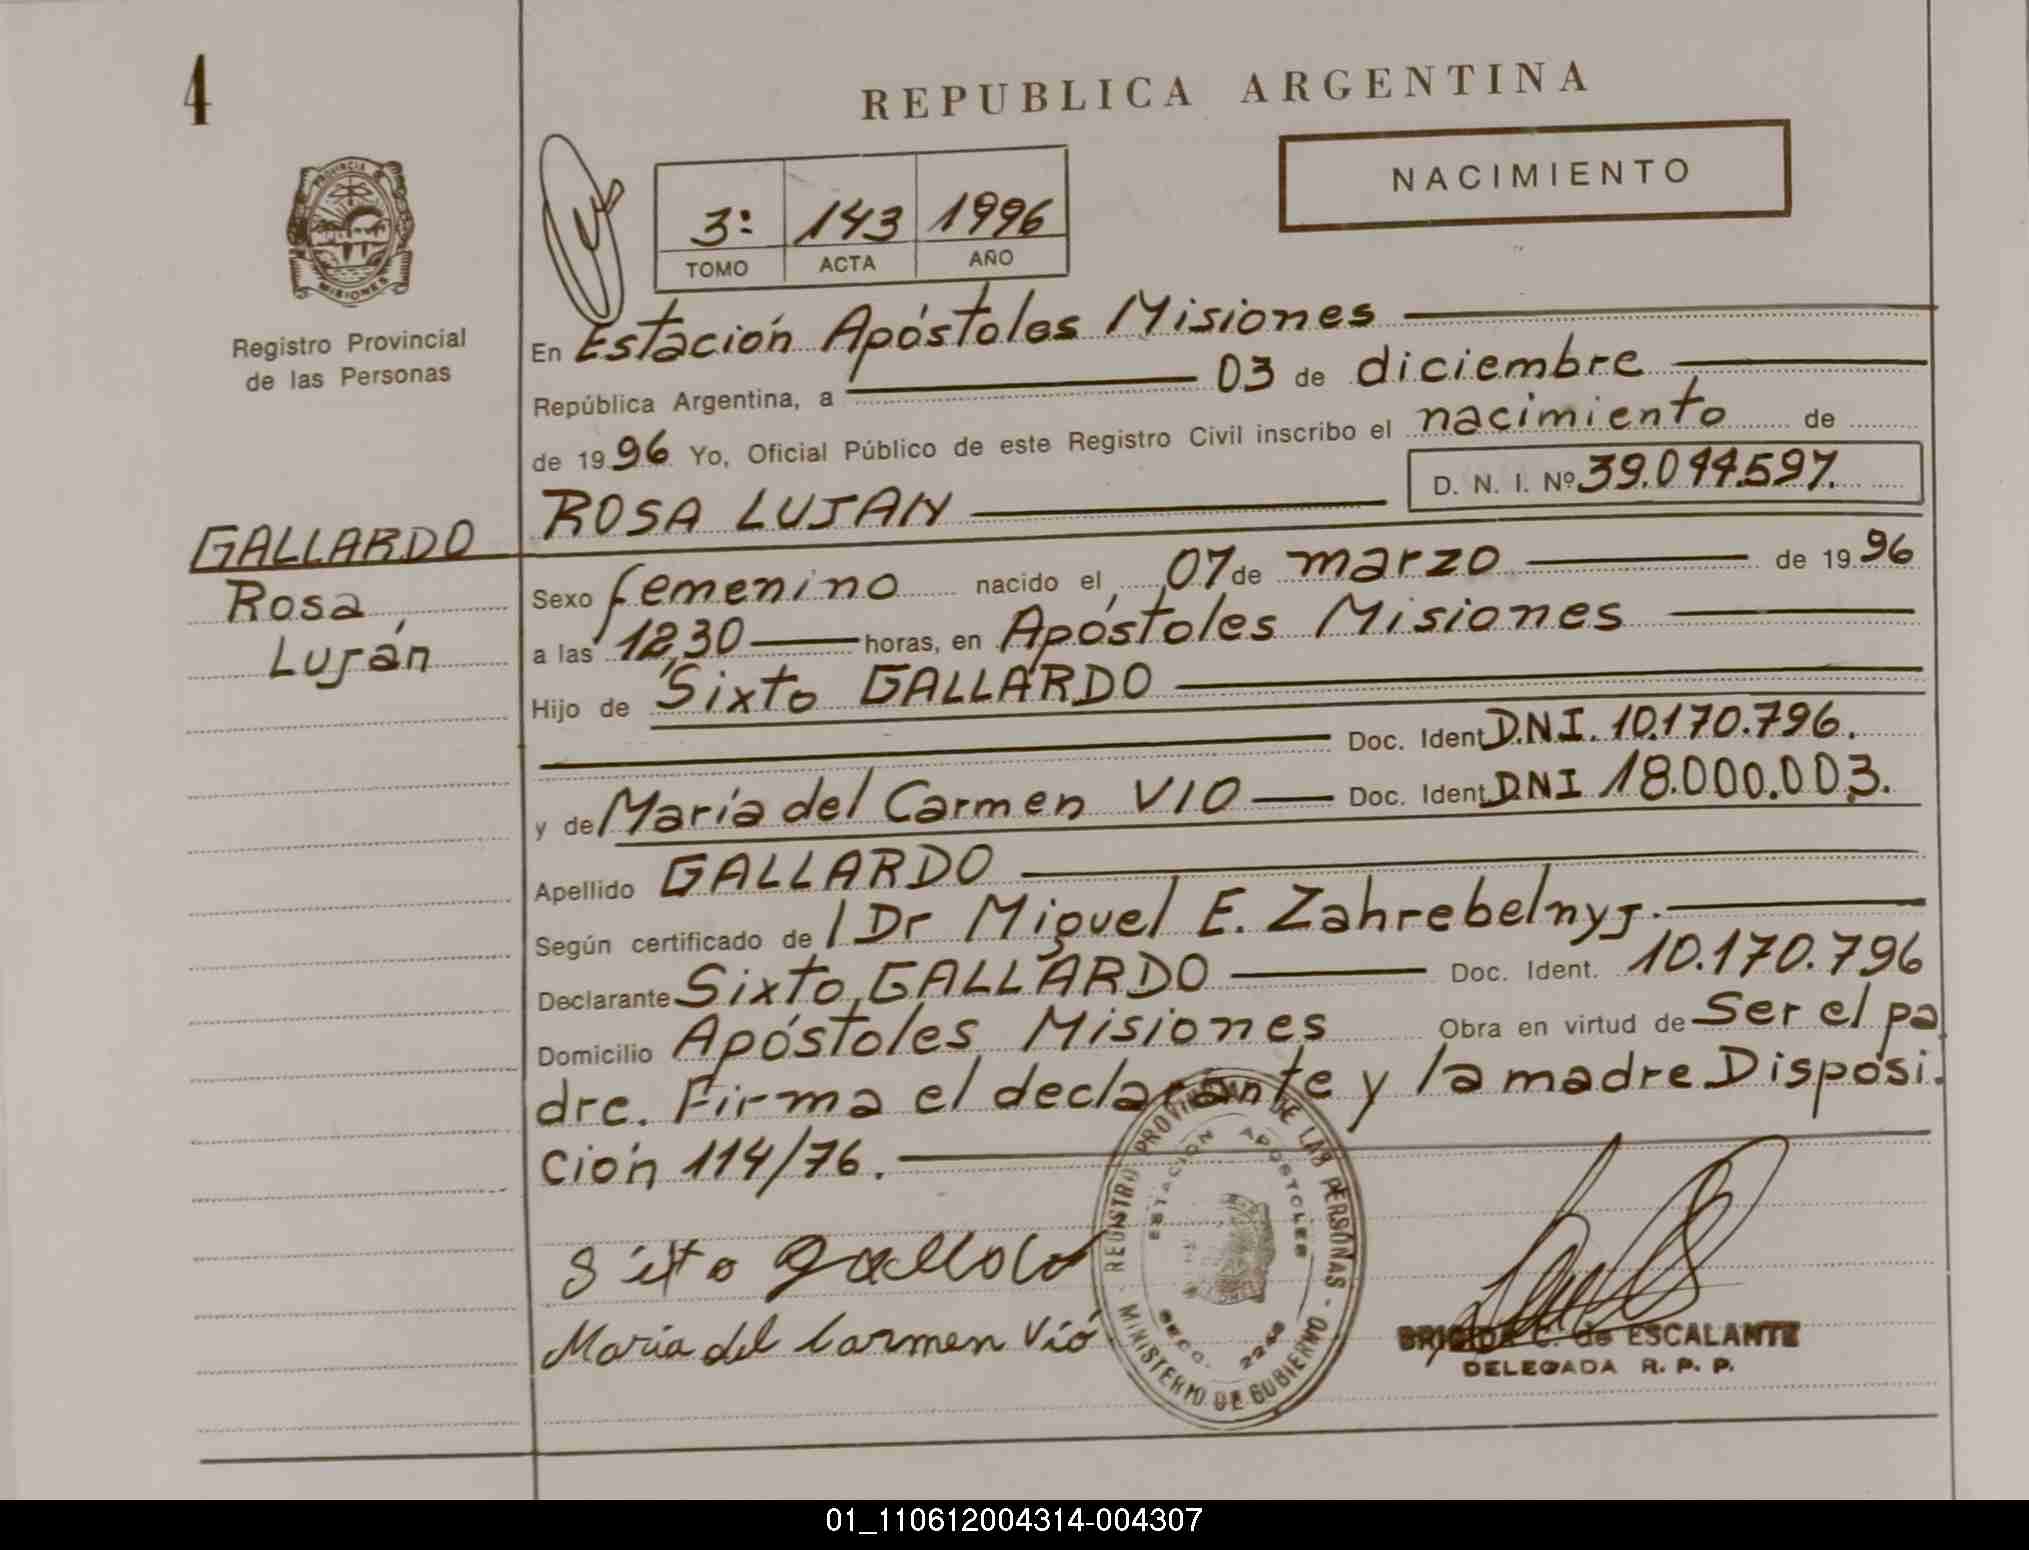 4
REPUBLICA ARGENTINA
NACIMIENTO
PROVINCIA DE
MISIONES
Registro Provincial
de las Personas
3: 143 1996
TOMO ACTA AÑO
En Estación Apóstoles Misiones
República Argentina, a 03 de diciembre
de 1996 Yo, Oficial Público de este Registro Civil inscribo el nacimiento de
D. N. I. Nº 39.044.597.
ROSA LUJAN
GALLARDO
Rosa
Luján
Sexo femenino nacido el 07 de marzo de 1996
a las 12,30 horas, en Apóstoles Misiones
Hijo de Sixto GALLARDO
Doc. Ident D.N.I. 10.170.796.
y de María del Carmen VIO Doc. Ident D.N.I 18.000.003.
Apellido GALLARDO
Según certificado de Dr Miguel E. Zahrebelnyj.
Declarante Sixto GALLARDO Doc. Ident. 10.170.796
Domicilio Apóstoles Misiones Obra en virtud de Ser el pa
dre. Firma el declarante y la madre Disposi.
ción 114/76.
Sixto Gallardo
Maria del Carmen Vió
REGISTRO PROVINCIAL DE LAS PERSONAS - MINISTERIO DE GOBIERNO
ESTACION APOSTOLES
SECC. 2248
BRIGIDA C. de ESCALANTE
DELEGADA R. P. P.
01_110612004314-004307